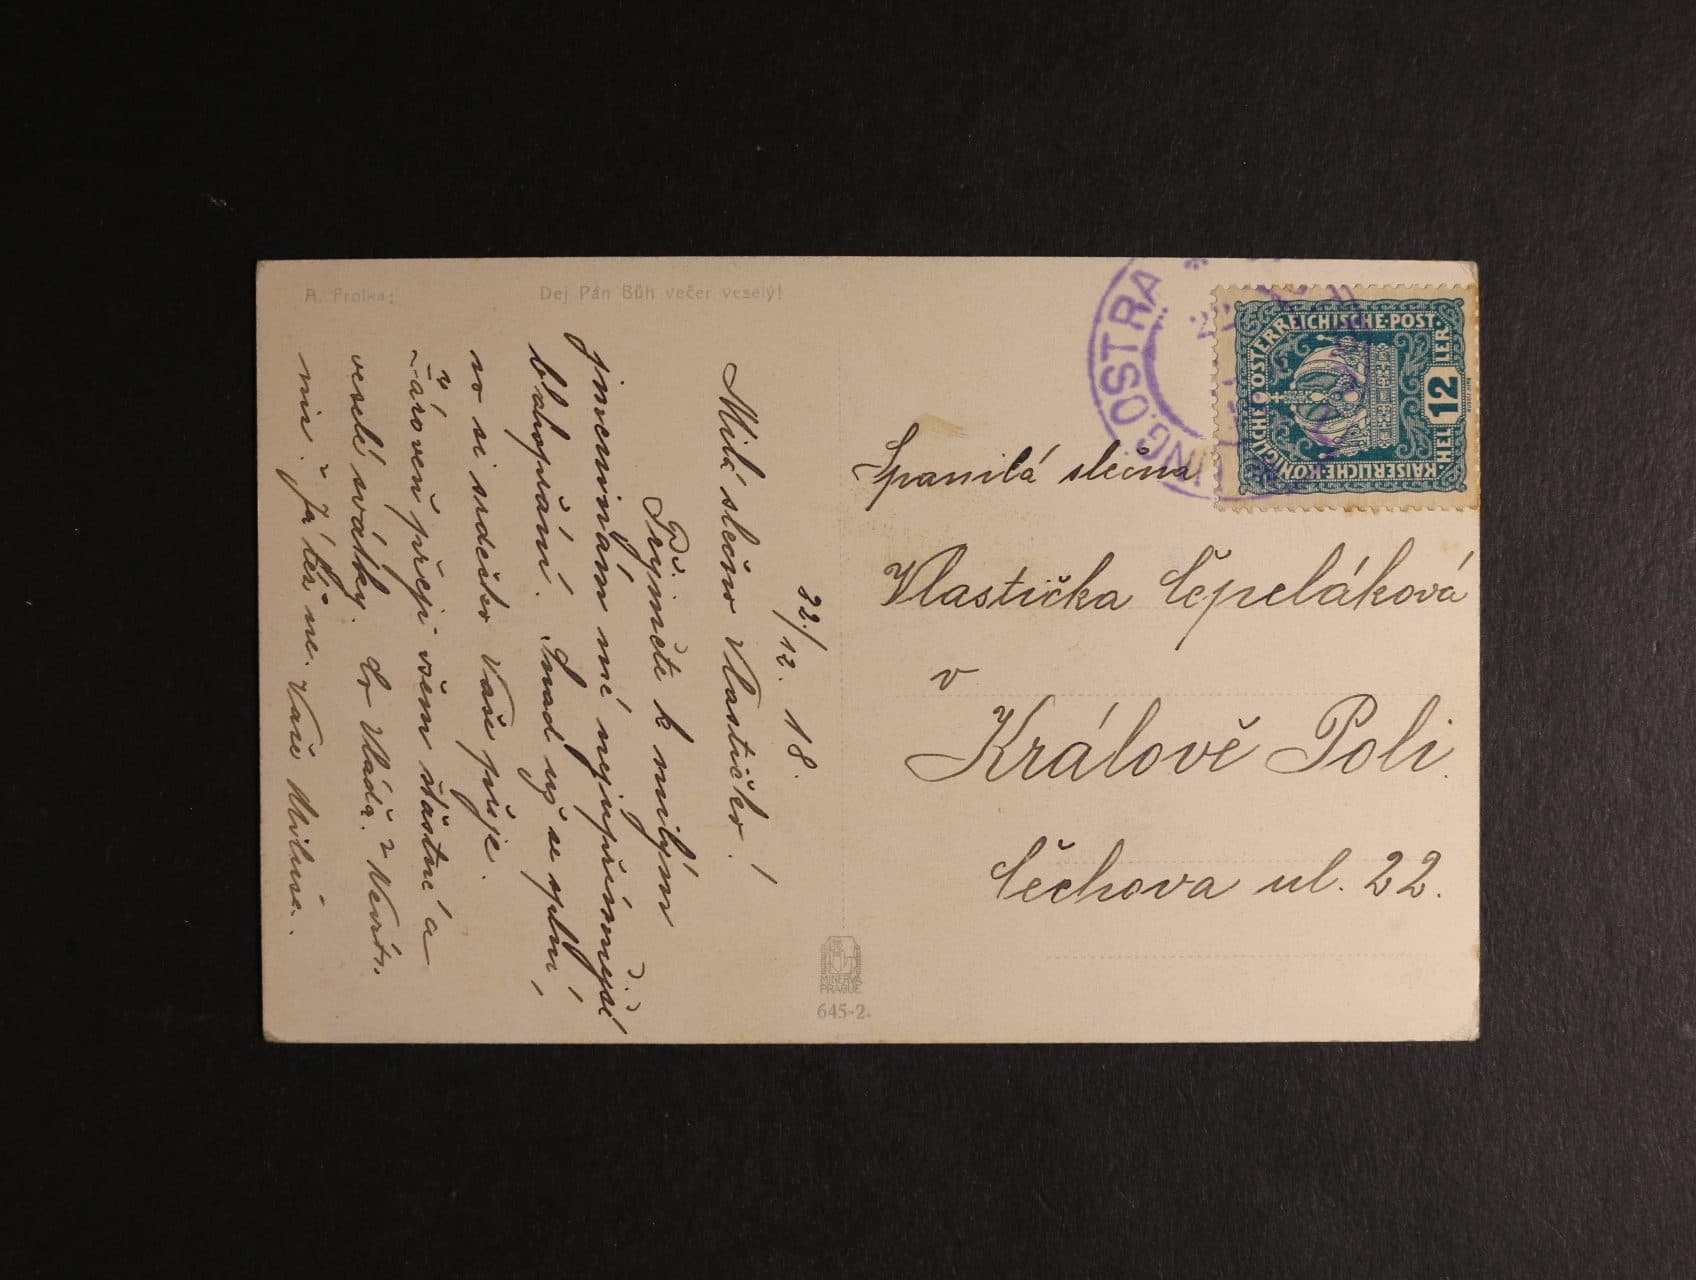 A. Frolka:
Dej Pán Bůh večer veselý!
22./12. 18.
Milá slečno Vlastičko!
Přijměte k milým
jmeninám mé nejupřímnější
blahopřání. Snad už se splní,
co si srdéčko Vaše přeje.
Zároveň přeji všem šťastné a
veselé svátky. Co Vláďa?
mi. Já též ne. Vaše Miluše.
KAISERLICHE KÖNIGLICHE ÖSTERREICHISCHE POST
12
HELLER
UNG. OSTRA
Spanilá slečna
Vlastička Čepeláková
v
Králově Poli.
Čechova ul. 22.
MINERVA
PRAGUE
645-2.